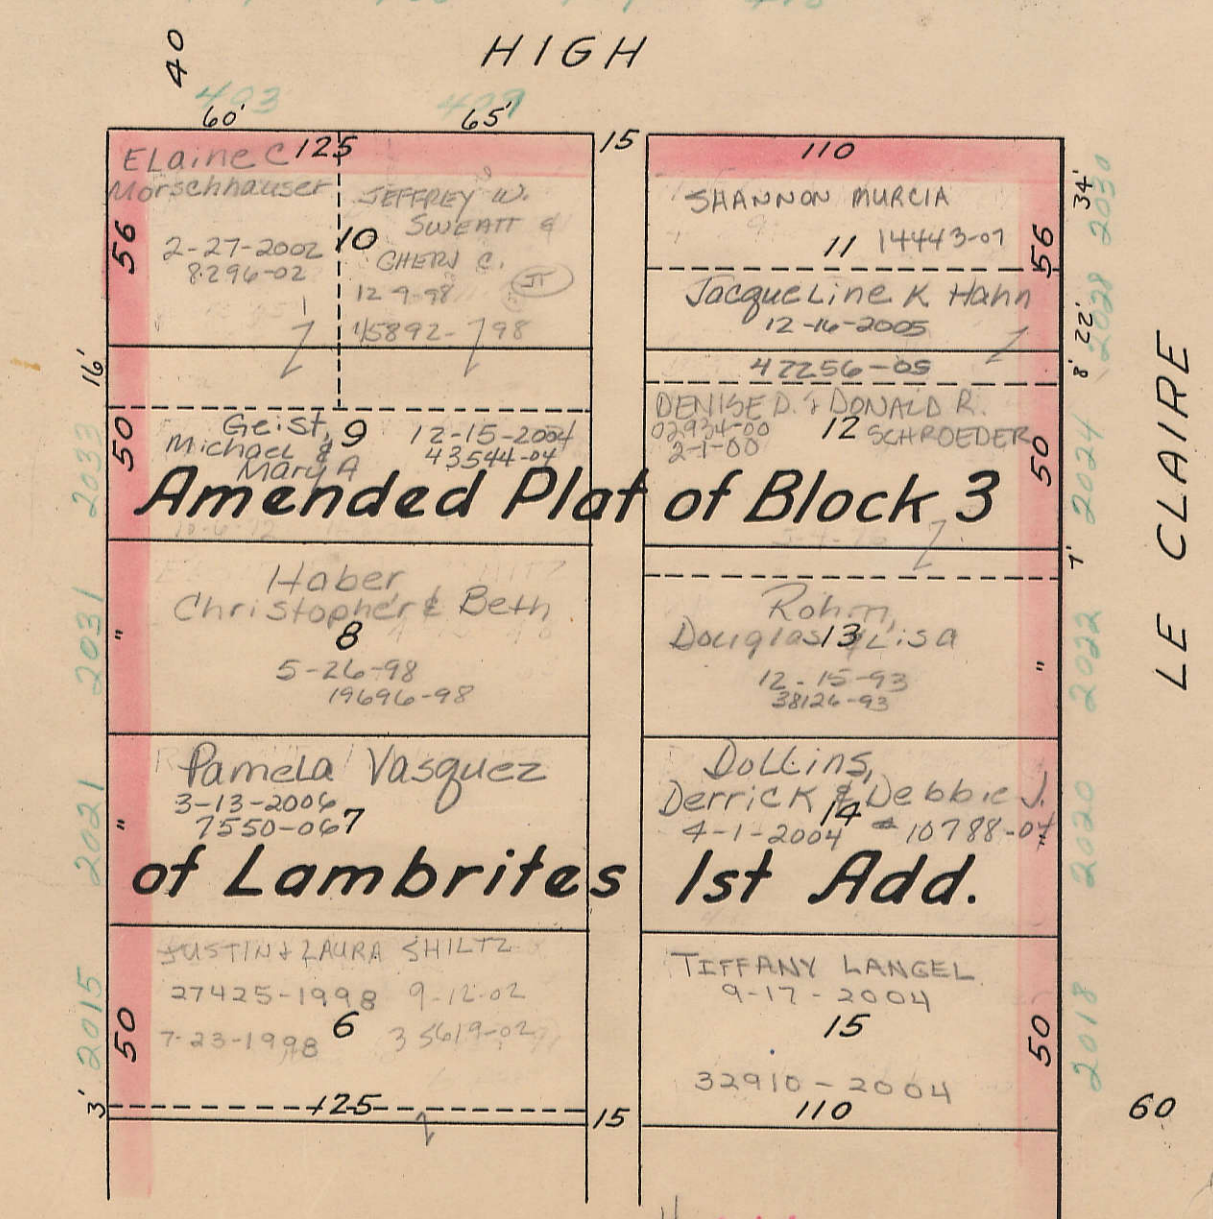 HIGH
40
403
60'
65'
125
15
110
ELaine C
Morschhauser
2-27-2002
8296-02
56
JEFFREY W.
SWEATT &
CHERI C.
10
12 9-98
JT
45892-98
SHANNON MURCIA
11 14443-07
56
34'
2030
JacqueLine K Hahn
12-16-2005
42256-05
22'
2028
8'
16'
50
2033
Geist,
Michael &
Mary A
9
12-15-2004
43544-04
DENISE D. & DONALD R.
SCHROEDER
02934-00
2-1-00
12
50
2024
LE CLAIRE
Amended Plat of Block 3
7'
Haber
Christopher & Beth
8
5-26-98
19696-98
"
2031
Rohm,
Douglas & Lisa
13
12-15-93
38126-93
"
2022
Pamela Vasquez
3-13-2006
7550-06
7
"
2021
Dollins,
Derrick & Debbie J.
14
4-1-2004 10788-04
"
2020
of Lambrites 1st Add.
JUSTIN & LAURA SHILTZ
27425-1998 9-12-02
6
7-23-1998 35619-02
50
2015
TIFFANY LANGEL
9-17-2004
15
32910-2004
50
2018
3'
125
15
110
60